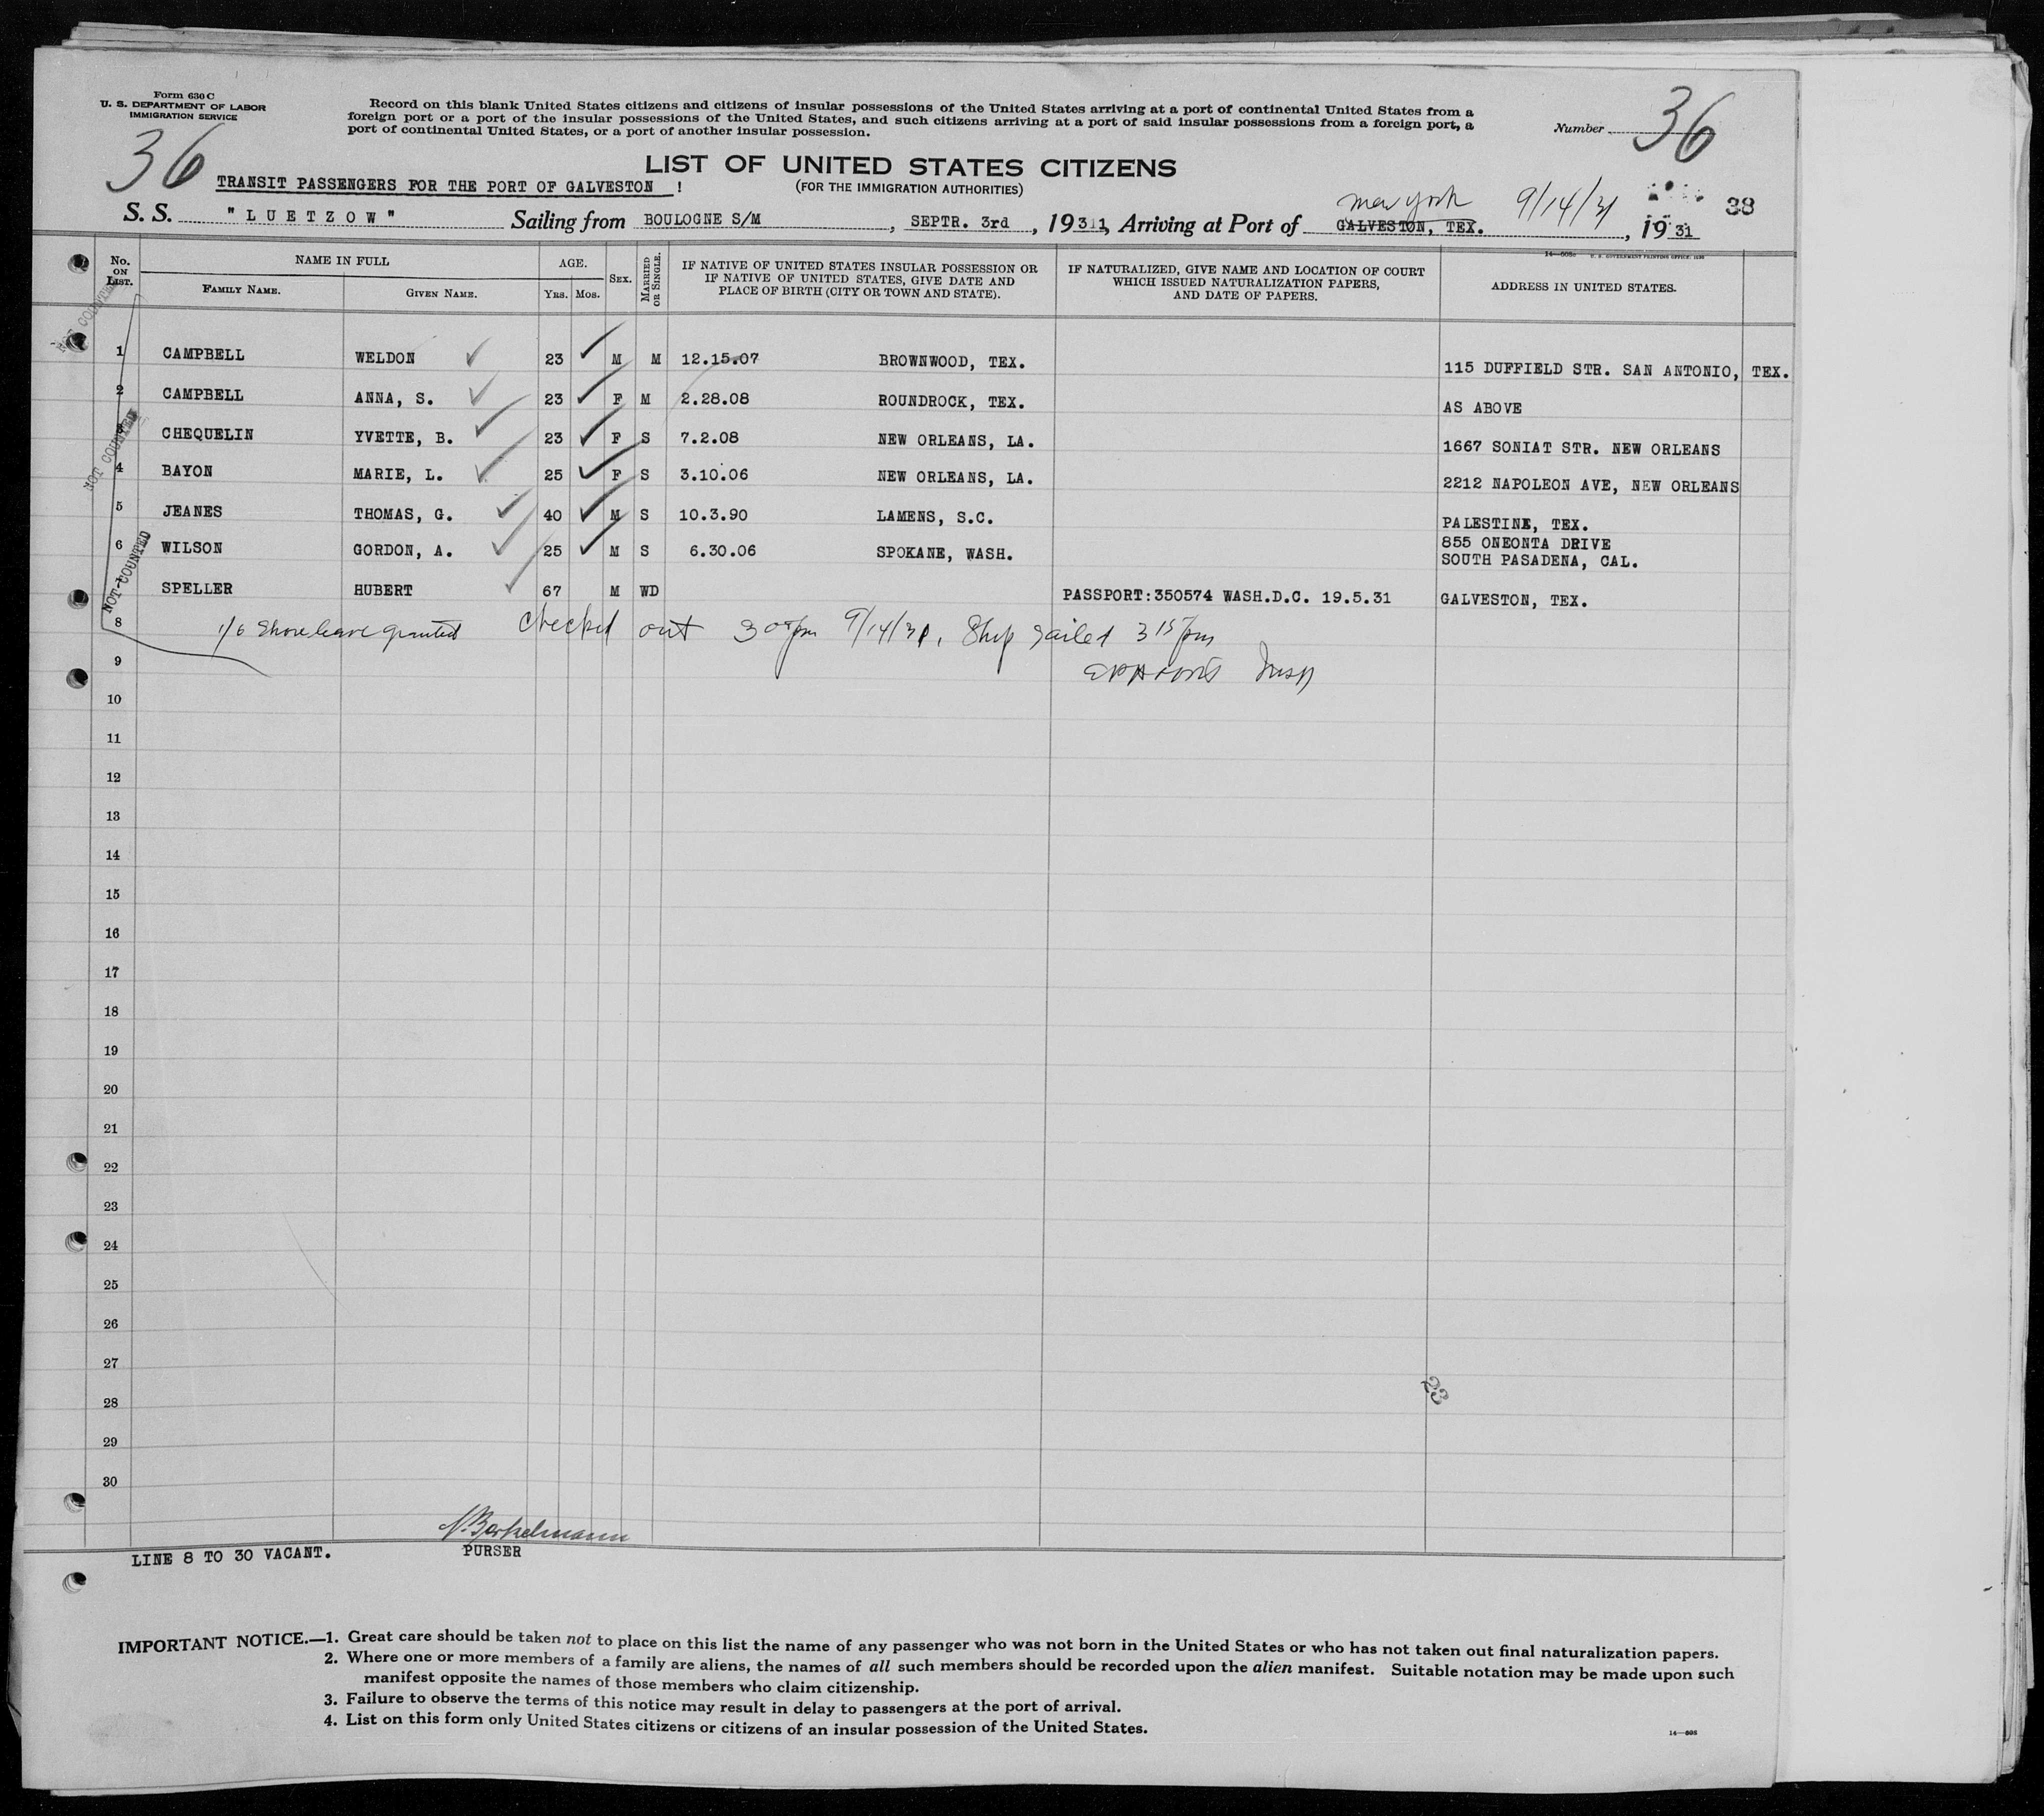 Form 630 C
U. S. DEPARTMENT OF LABOR
IMMIGRATION SERVICE
Record on this blank United States citizens and citizens of insular possessions of the United States arriving at a port of continental United States from a
foreign port or a port of the insular possessions of the United States, and such citizens arriving at a port of said insular possessions from a foreign port, a
port of continental United States, or a port of another insular possession.
Number 36
36
LIST OF UNITED STATES CITIZENS
TRANSIT PASSENGERS FOR THE PORT OF GALVESTON !
(FOR THE IMMIGRATION AUTHORITIES)
New York 9/14/31
38
S. S. "LUETZOW" Sailing from BOULOGNE S/M, SEPTR. 3rd, 1931, Arriving at Port of GALVESTON, TEX., 1931
U. S. GOVERNMENT PRINTING OFFICE: 1930
No. ON LIST. NAME IN FULL AGE. SEX. MARRIED OR SINGLE. IF NATIVE OF UNITED STATES INSULAR POSSESSION OR IF NATIVE OF UNITED STATES, GIVE DATE AND PLACE OF BIRTH (CITY OR TOWN AND STATE). IF NATURALIZED, GIVE NAME AND LOCATION OF COURT WHICH ISSUED NATURALIZATION PAPERS, AND DATE OF PAPERS. ADDRESS IN UNITED STATES.
FAMILY NAME. GIVEN NAME. YRS. MOS.
NOT COUNTED
1 CAMPBELL WELDON 23 M M 12.15.07 BROWNWOOD, TEX. 115 DUFFIELD STR. SAN ANTONIO, TEX.
2 CAMPBELL ANNA, S. 23 F M 2.28.08 ROUNDROCK, TEX. AS ABOVE
3 CHEQUELIN YVETTE, B. 23 F S 7.2.08 NEW ORLEANS, LA. 1667 SONIAT STR. NEW ORLEANS
NOT COUNTED
4 BAYON MARIE, L. 25 F S 3.10.06 NEW ORLEANS, LA. 2212 NAPOLEON AVE, NEW ORLEANS
5 JEANES THOMAS, G. 40 M S 10.3.90 LAMENS, S.C. PALESTINE, TEX.
6 WILSON GORDON, A. 25 M S 6.30.06 SPOKANE, WASH. 855 ONEONTA DRIVE
SOUTH PASADENA, CAL.
NOT COUNTED
7 SPELLER HUBERT 67 M WD PASSPORT:350574 WASH.D.C. 19.5.31 GALVESTON, TEX.
8 1/6 Shore leave granted checked out 3 00 pm 9/14/31, Ship sailed 3 15 pm
9 Insp
10
11
12
13
14
15
16
17
18
19
20
21
22
23
24
25
26
27
23
28
29
30
PURSER
LINE 8 TO 30 VACANT.
IMPORTANT NOTICE.—1. Great care should be taken not to place on this list the name of any passenger who was not born in the United States or who has not taken out final naturalization papers.
2. Where one or more members of a family are aliens, the names of all such members should be recorded upon the alien manifest. Suitable notation may be made upon such
manifest opposite the names of those members who claim citizenship.
3. Failure to observe the terms of this notice may result in delay to passengers at the port of arrival.
4. List on this form only United States citizens or citizens of an insular possession of the United States.